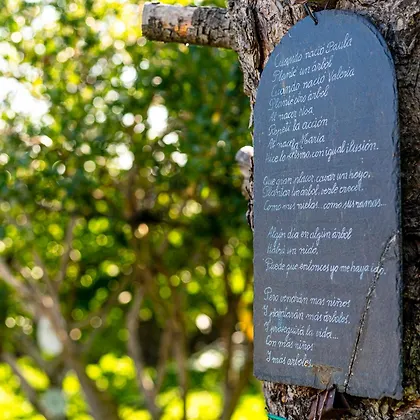 Cuando nació Paula
Planté un árbol
Cuando nació Valeria
Planté otro árbol
Al nacer Noa
Repetí la acción
Al nacer María
Hice lo mismo, con igual ilusión.
Que gran placer, cavar un hoyo,
Plantar un árbol, verlo crecer.
Como mis nietas... como sus ramas...
Algún día en algún árbol
Habrá un nido.
Puede que entonces yo me haya ido.
Pero vendrán mas niños
Y plantarán más árboles.
Y proseguirá la vida...
Con más niños
Y más árboles.